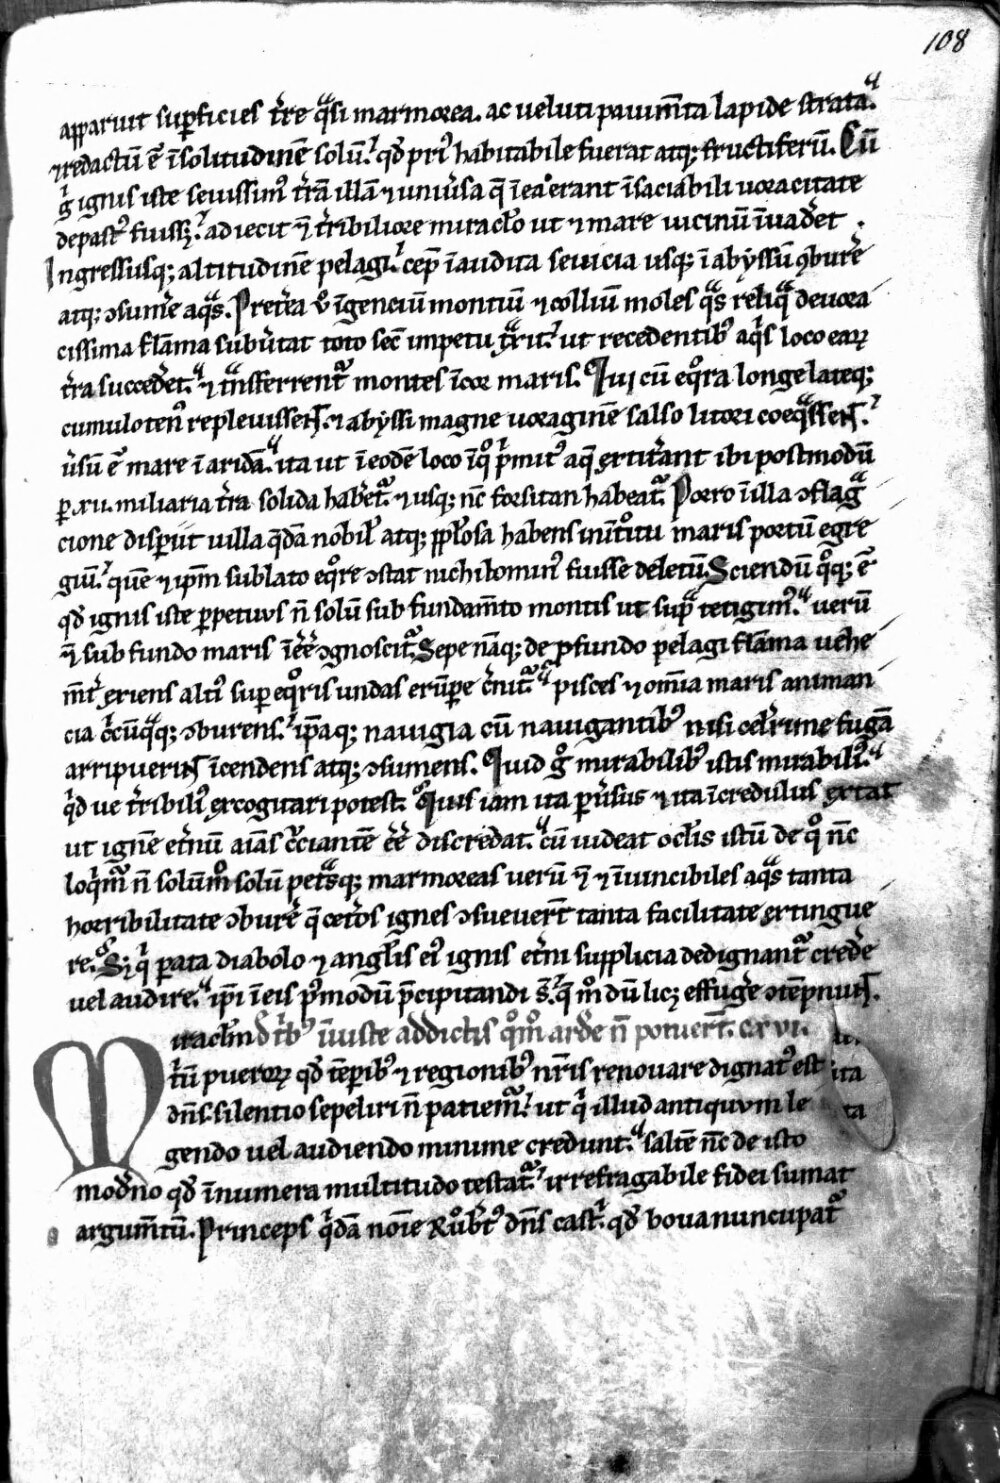 108
apparuit supficies tr̄e q̄si marmorea. ac ueluti pauim̄ta lapide strata.
⁊ redactū ē ī solitudinē solū. qd̄ pri᷒ habitabile fuerat atq; fructiferū. Cū
g̊ ignis iste seuissim᷒ tr̄a illā ⁊ uniūsa q̄ ī ea erant īsaciabili uoracitate
depast᷒ fuiss;. adiecit ⁊̄ tr̄ibiliore miraclo ut ⁊ mare uicinū īuadet.
Ingressusq; altitudinē pelagi. cep̄ īaudita seuicia usq; ī abyssū ꝯburē
atq; ꝯsumē aq̄s. Pretēa ū īgenciū montiū ⁊ colliū moles q̄s reliq̄ deuora
cissima flāma subūtat toto sec̄ impetu tr̄it. ut recedentib᷒ aqⁱs loco eaꝝ
tr̄a succedet. ⁊ tn̄sferrent᷑ montes ī cor maris. Qui cū eqͦra longe lateq;
cumuloten᷒ repleuissent. ⁊ abyssi magne uoraginē salso litori coeq̄ssent.
ūsū ē mare ī aridā. ita ut ī eodē loco ī qͦ pⁱmit᷒ aq̄ extitēant ibi postmodū
ꝑ .xii. miliaria tr̄a solida habet᷑ ⁊ usq; nc̄ forsitan habeat᷑. Porro ī illa ꝯflag̃
cione disperiit uilla q̄dā nobil̄ atq; ꝓp̄losa habens īnītoͦitu maris portū egre
giū. quē ⁊ ip̄m sublato eqͦre ꝯstat nichilomin᷒ fuisse deletū. Sciendū qͦq; ē
qd̄ ignis iste perpetuus n̄ solū sub fundam̄to montis ut sup̄ tetigim᷒. uerū
⁊̄ sub fundo maris īeē ꝯgnoscit᷑. Sepe nāq; de ꝓfundo pelagi flāma uehe
m̄t̄ exiens alti᷒ super eqͦris undas erūpe c̄nit᷑. pisces ⁊ om̄ia maris animan
cia cⁱcūq̄q; ꝯburens. ip̄aq; nauigia cū nauigantib᷒ nisi celerime fugā
arripuerint īcendens atq; ꝯsumens. Quid g̊ mirabilib᷒ istis mirabili᷒.
qⁱd ue tr̄ibili᷒ excogitari potest. Quis iam ita perūsus ⁊ ita īcredulus extat
ut ignē etn̄ū aīas cͨciantē eē discredat. cū uideat ocl̄is istū de qͦ nc̄
loqⁱm᷑ n̄ solūmͦ solū pet̄sq; marmoreas uerū ⁊̄ ⁊ īuincibiles aq̄s tanta
horribilitate ꝯburē q̄ cet̄os ignes ꝯsueuert̄ tanta facilitate extingue
re. S; qⁱ parata diabolo ⁊ angl̄is ei᷒ ignis etn̄i supplicia dedignant᷑ crede
uel audire. ip̄i ī eis pᷤmodū p̄cipitandi s̄. q̄ mͦ dū lic; effugē ꝯtēpnunt.
Miraclm̄ d̄ tⁱb᷒ īiuste addictis qͦmͦ ardē n̄ potuert̄. cxvi.
tⁱū pueroꝝ qd̄ tēporib᷒ ⁊ regionib᷒ nr̄is renouare dignat᷒ est
dn̄s. silentio sepeliri n̄ patiem᷑. ut qⁱ illud antiquum le
gendo uel audiendo minime credunt. saltē nc̄ de isto
modn̄o qd̄ īnumera multitudo testat᷑. irrefragabile fidei sumat
argum̄tū. Princeps qⁱdā noīe Rub̄t᷒ dn̄s castⁱ. qd̄ boua nuncupat᷑